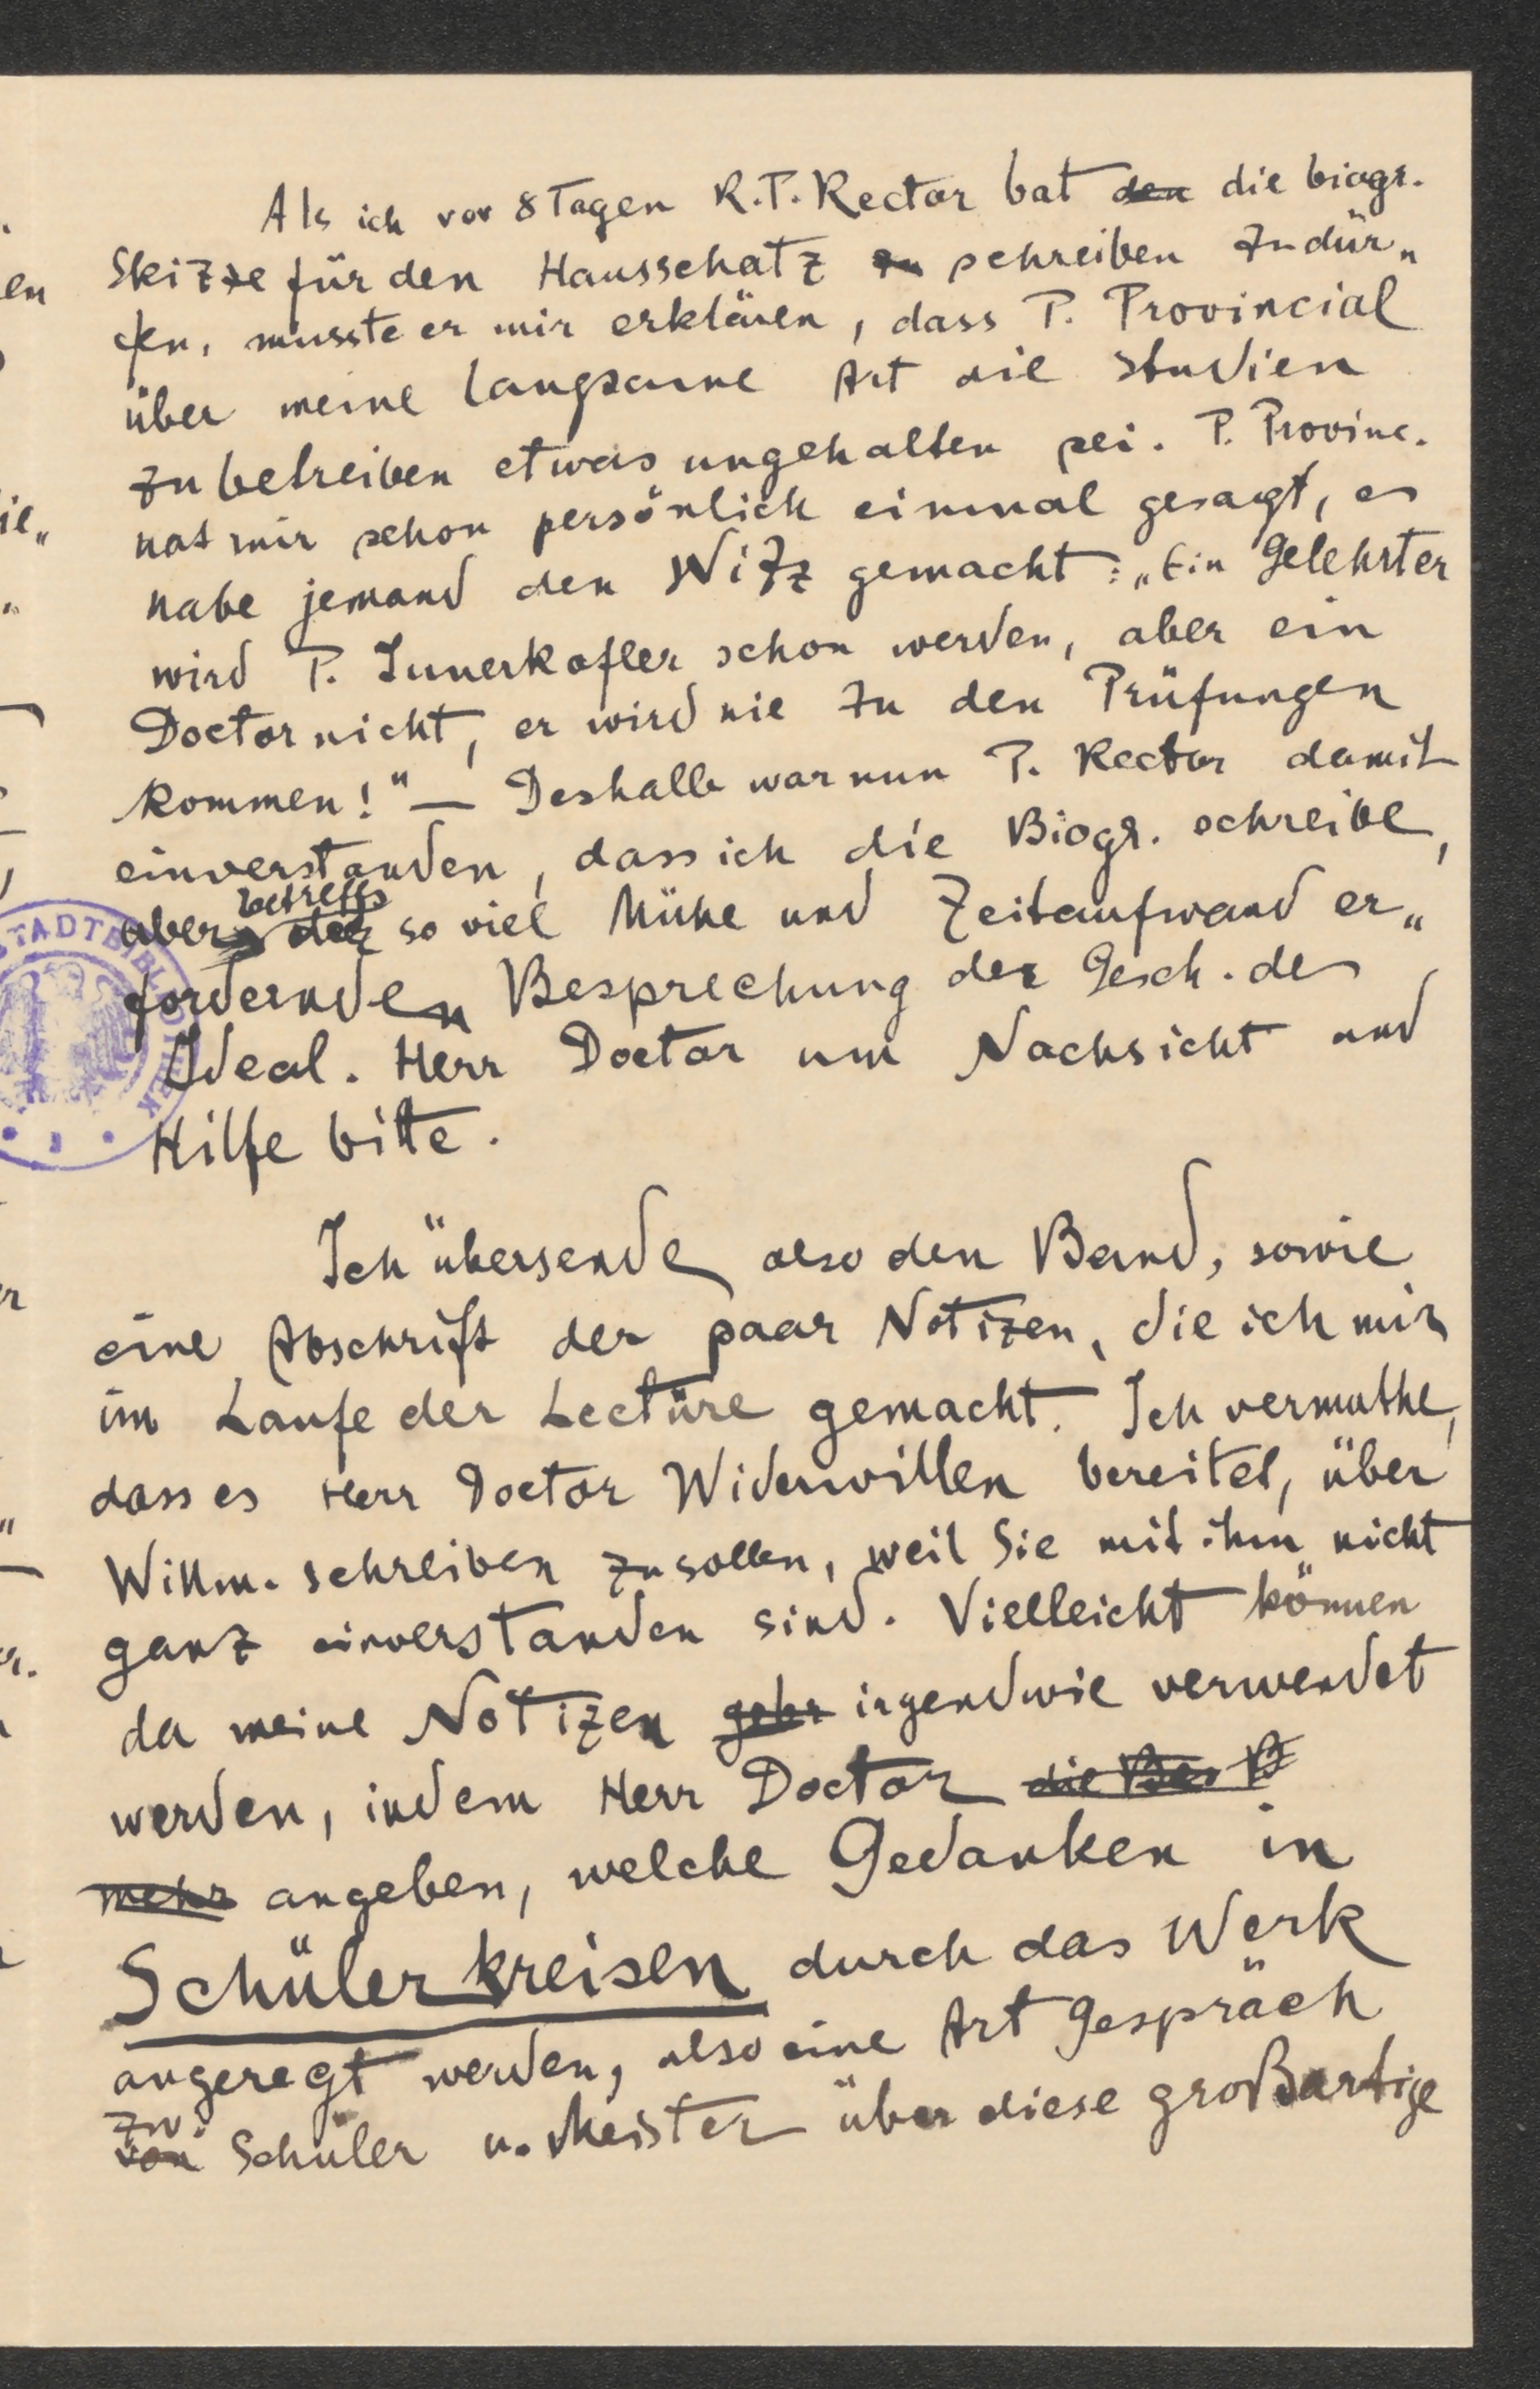 Als ich vor 8 Tagen R.P. Rector bat den die biogr.
Skizze für den Hausschatz zu schreiben zu dür„
fen, musste er mir erklären, dass P. Provincial
über meine langsame Art die Studien
zu betreiben etwas ungehalten sei. P. Provinc.
hat mir schon persönlich einmal gesagt, es
habe jemand den Witz gemacht: „Ein Gelehrter
wird P. Innerkofler schon werden, aber ein
Doctor nicht, er wird nie zu den Prüfungen
kommen!" — Deshalb war nun P. Rector damit
einverstanden, dass ich die Biogr. schreibe,
betreffs
aber der so viel Mühe und Zeitaufwand er„
fordernden Besprechung der Gesch. des
Ideal. Herr Doctor um Nachsicht und
Hilfe bitte.
Ich übersende also den Band, sowie
eine Abschrift der paar Notizen, die ich mir
im Laufe der Lectüre gemacht. Ich vermuthe,
dass es Herr Doctor Widerwillen bereitet, über
Willm. schreiben zu sollen, weil Sie mit ihm nicht
ganz einverstanden sind. Vielleicht können
da meine Notizen irgendwie verwendet
werden, indem Herr Doctor die Bes B
mehr angeben, welche Gedanken in
Schülerkreisen durch das Werk
angeregt werden, also eine Art Gespräch
zw.
von Schüler u. Meister über diese großartige
STADTBIBLIOTHEK